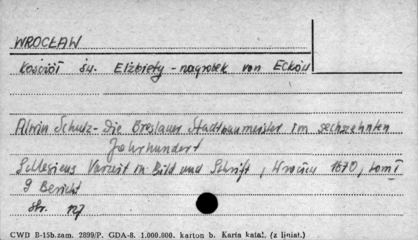 WROCŁAW
Kościół św. Elżbiety - nagrobek von Ecków
Alwin Schultz - Die Breslauer Stadtbaumeister im sechszehnten
Jahrhundert
Schlesiens Vorzeit in Bild und Schrift, Wrocław 1870, tom I
9 Bericht
str. 127
CWD B-15b.zam. 2899/P. GDA-8. 1.000.000. karton b. Karta katal. (z liniat.)